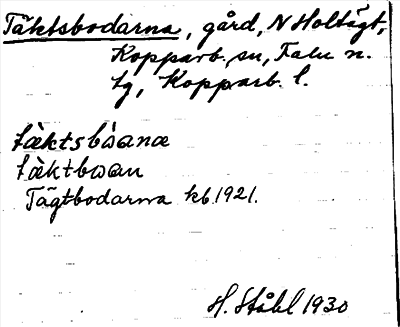 Täktsbodarna, gård, N Holtägt,
Kopparb. sn, Falu n.
tg, Kopparb. l.
täktsbòana
täktboan
Tägtbodarna kb 1921.
H. Ståhl 1930